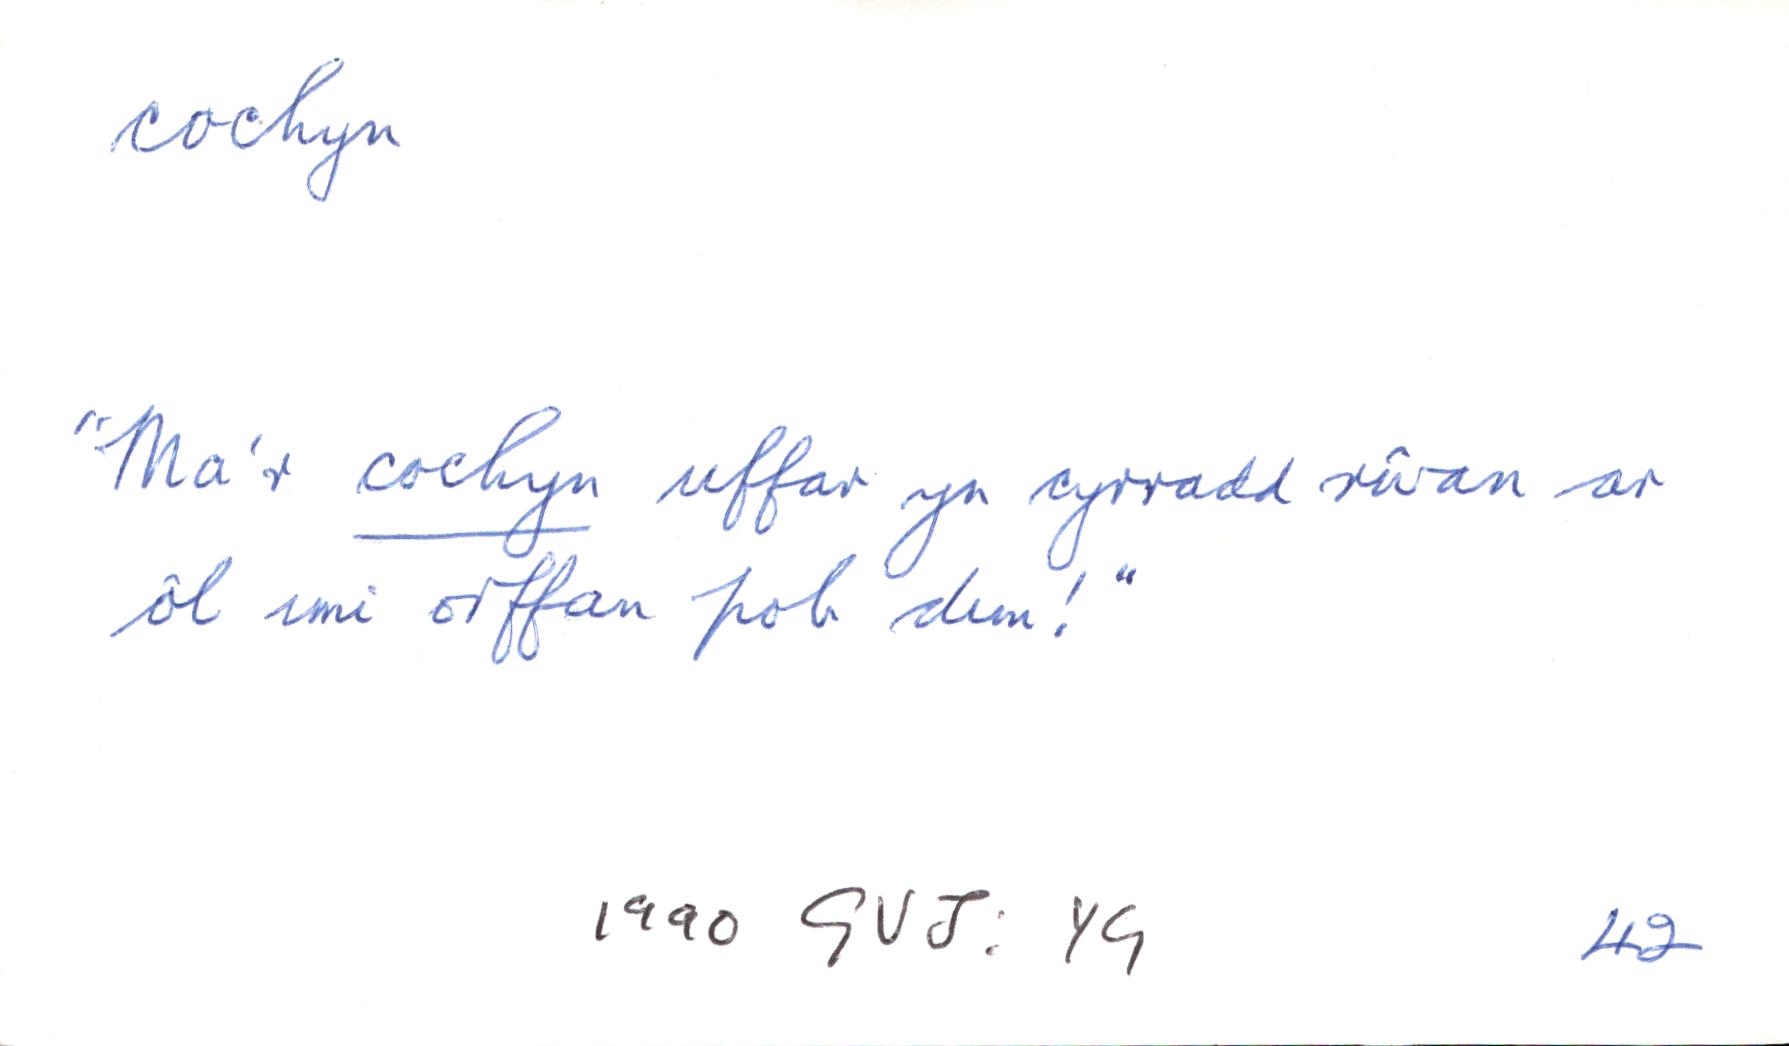 cochyn
"Ma'r cochyn uffar yn cyrradd rŵan ar
ôl imi orffan pob dim!"
1990 GVJ: YG 42